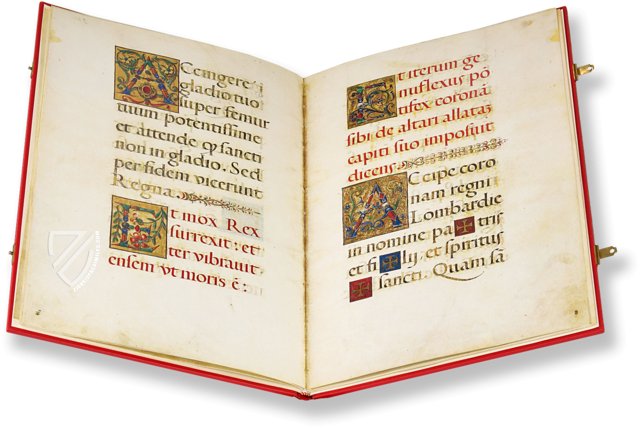 Accingere
gladio tuo
super femur
tuum potentissime
et attende q̃ sancti
non in gladio. Sed
per fidem vicerunt
Regna.
Et mox Rex
surrexit: et
ter vibravit
ensem vt moris ẽ:
Et iterum ge
nuflexus põ
tifex coronã
sibi de altari allatã
capiti suo imposuit
dicens.
Accipe coro
nam regni
Lombardie
in nomine pa tris
et fi lij, et spiritus
sancti. Quam sã